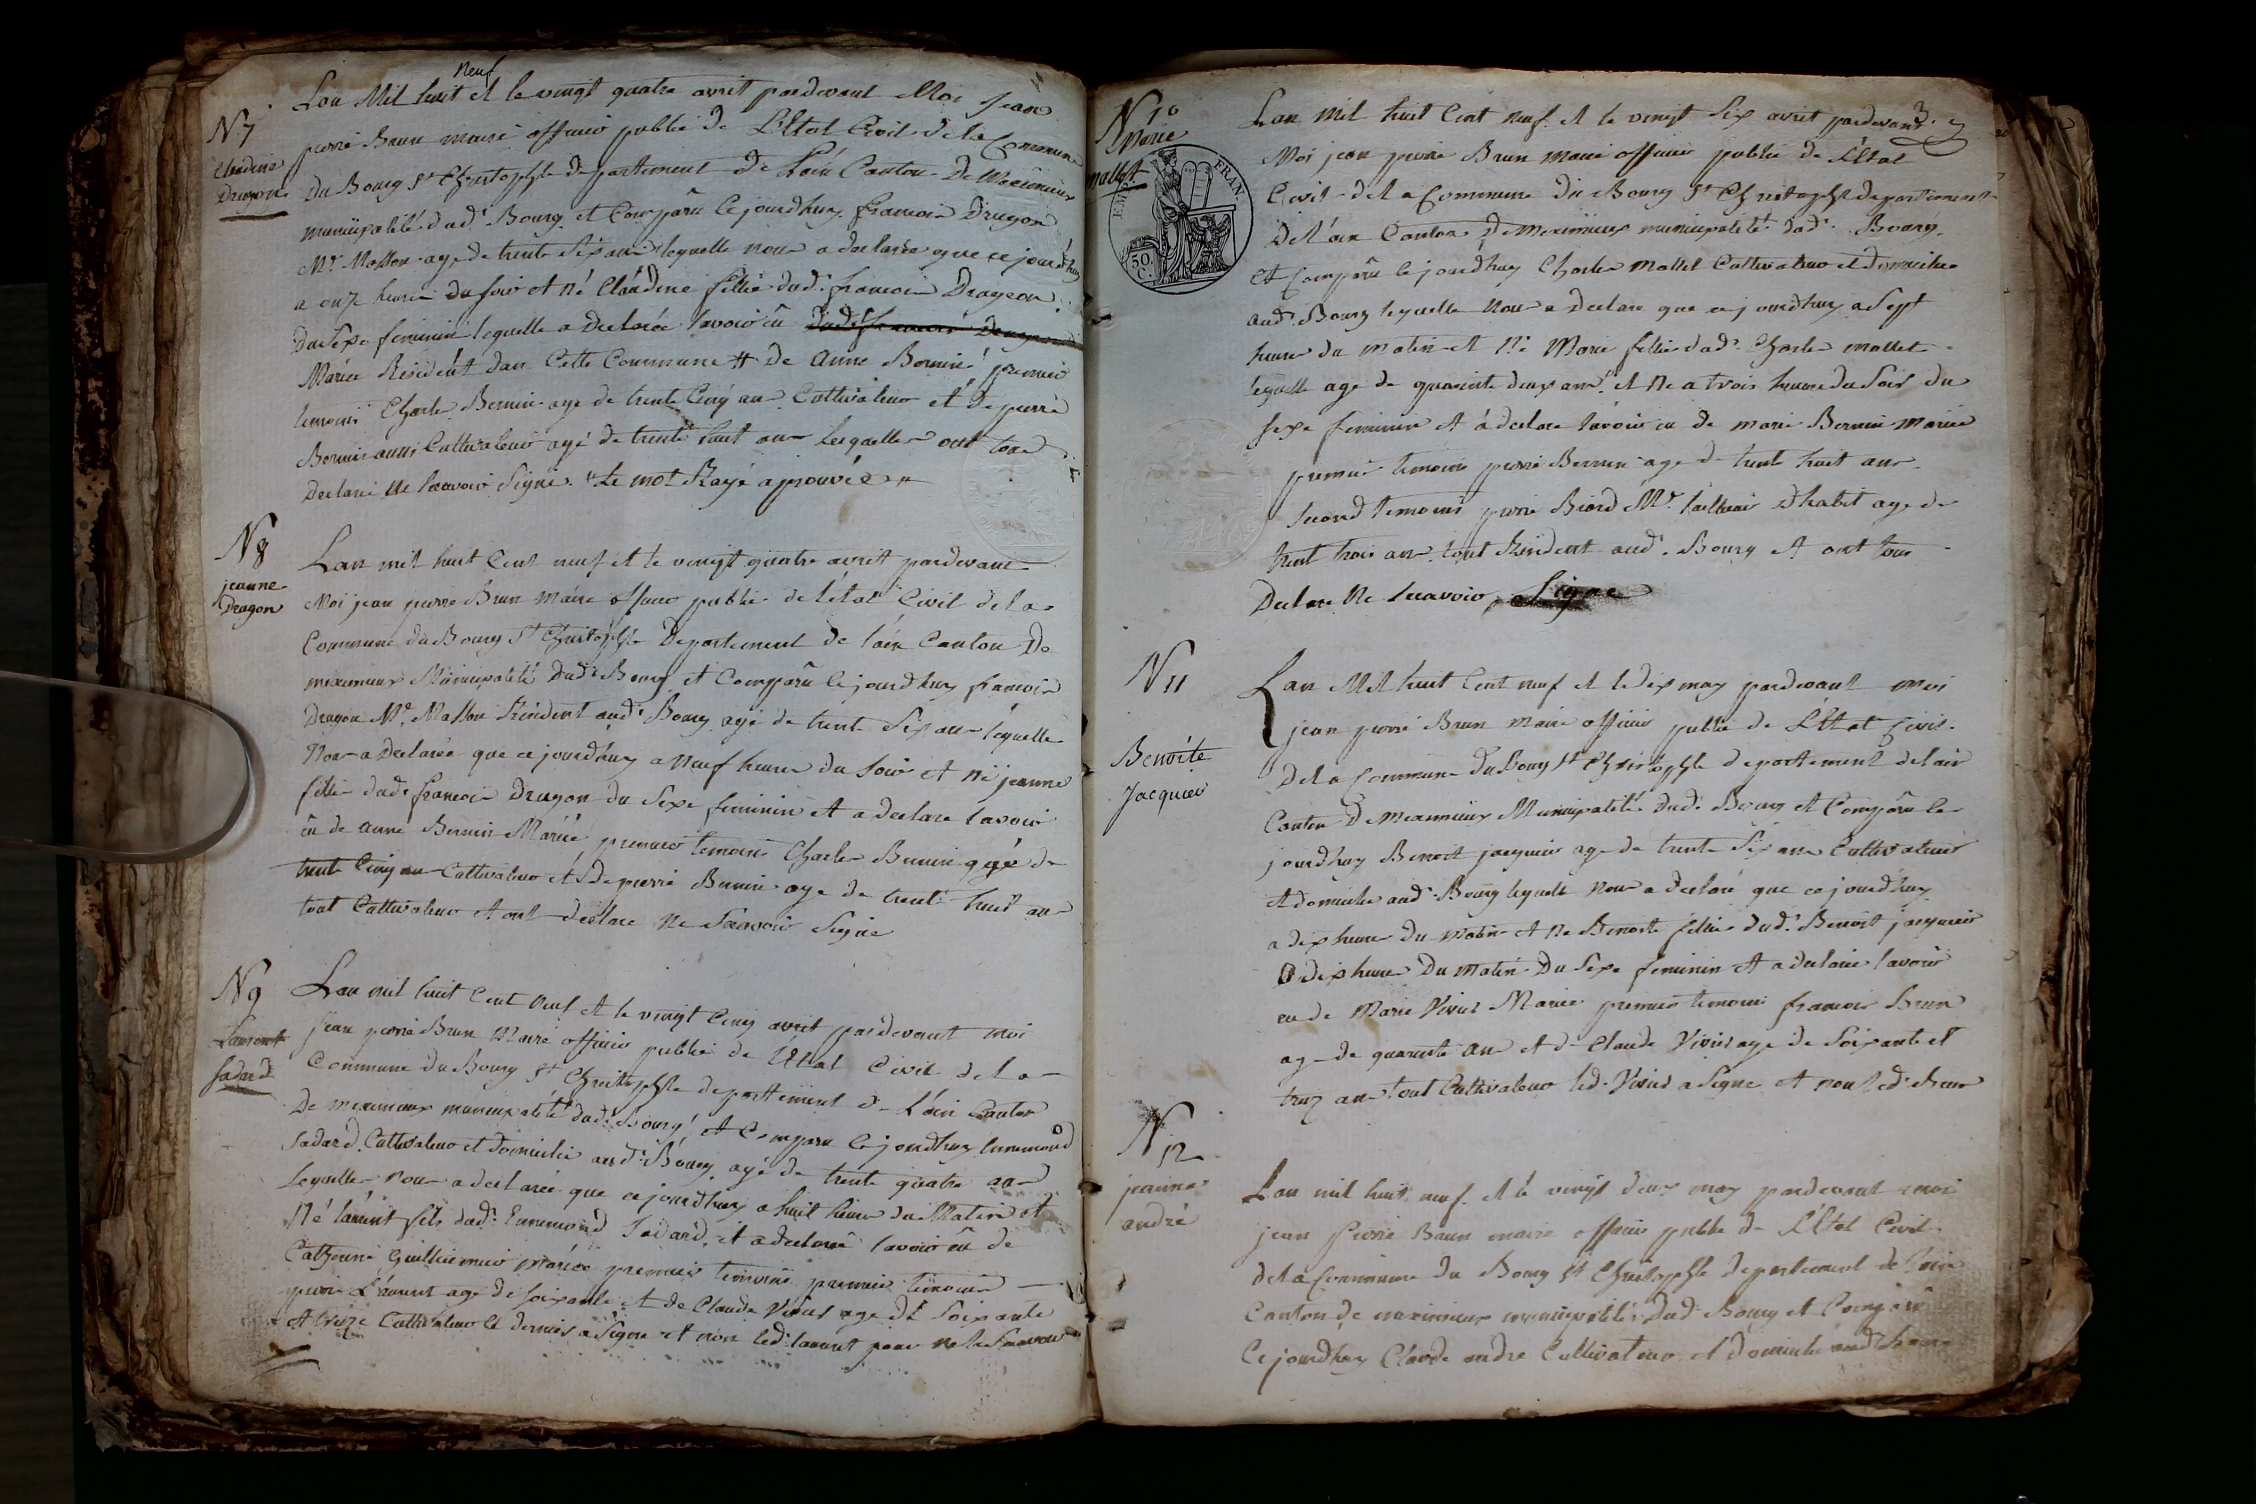 neuf
Lan Mil huit et le vingt quatre avril pardevant Moi jean
N 7
Claudine
Dragon
pierre Brun maire officier publié de L'Etat Civil de la Commune
du Bourg St Christophle departement de Lain Canton De Meximieux
municipalité dud. Bourg et Comparu Cejourdhuy francois Dragon
Mr. Masson age de trente six ans lequelle nous a declarée que cejourdhuy
a onze heure du soir et né Claudine fillie dud. francois Dragon
Du sexe feminin lequelle a Declarée lavoir eu
Mariée Resident dan Cette Commune # de anne Bernin premier
temoins Charle Bernin age de trente Cinq an Cultivateur et de pierre
Bernin aussi Cultivateur agé de trente huit an lesquelle ont tous
Declaré ne scavoir signé. Le mot Rayé aprouvée #
N 8
jeanne
Dragon
Lan mil huit Cent neuf et le vingt quatre avril pardevant
Moi jean pierre Brun maire officier publié de létat Civil de la
Commune du Bourg St Christophle Departement de lain Canton De
meximieux Municipalité Dud. Bourg et Comparu Cejourdhuy francois
Dragon Mr. Masson Résident aud. Bourg agé de trente six an lequelle
Nous a Declarée que cejourdhuy a neuf heure du soir et né jeanne
fillie dud. francois Dragon du sexe feminin et a declare lavoir
eu de anne Bernin Mariée premier temoins Charle Bernin agé de
trente Cinq an Cultivateur et De pierre Bernin age de trente huit an
tout Cultivateur et ont declare ne scavoir signe
N 9
Laurent
Sadard
Lan mil huit Cent neuf et le vingt Cinq avril pardevant moi
jean pierre Brun Maire officier publié de létat Civil de la
Commune du Bourg St Christophle departtement de Lain Canton
De meximieux municipalité dud. Bourg et Comparu Cejourdhuy
Sadard Cultivateur et domicilié aud. Bourg agé de trente quatre an
Lequelle nous a declarée que cejourdhuy a huit heure du Matin et
Né laurent fils dud. Sadard et a declaré lavoir eu de
Catherine mariée premier temoins premier temoins
pierre Laurent age de soixante et de Claude Vivies age de soixante
et treize Cultivateur le dernier a signe et non led. laurent pour ne le scavoir
N 10
Marie
mallet
EMP. FRAN.
50.
C.
3.
Lan mil huit Cent neuf et le vingt six avril pardevant
Moi jean pierre Brun maire officier publié de L'Etat
Civil de la Commune du Bourg St Christophle departement
De l'ain Canton De meximieux municipalité dud. Bourg
et Comparu Cejourdhuy Charle mallet Cultivateur et domicilie
aud. Bourg lequelle nous a declare que cejourdhuy a sept
heure du matin et né Marie fillie dud. Charle mallet
lequelle age de quarante deux ans et ne a trois heure du soir du
sexe feminin et a declare lavoir eu de marie Bernin mariée
premier temoins pierre Bernin age de trente huit an
second temoins pierre Biord Mr. tailleur d'habit age de
trent trois an tout Résident aud. Bourg et ont tous
Declare ne scavoir signe
N 11
Benoite
Jacquier
Lan Mil huit Cent neuf et le dix may pardevant moi
jean pierre Brun maire officier publié de L'Etat Civil
De la Commune Du Bourg St Christophle departement de lain
Canton De meximieux Municipalité dud. Bourg et Comparu le
jourdhuy Benoit jacquier age de trente six an Cultivateur
et domicilie aud. Bourg lequelle nous a declaré que cejourdhuy
a dix heure du matin et ne Benoite fillie dud. Benoit jacquier
a dix heure Du matin Du sexe feminin et a declarée lavoir
eu de Marie Vivies Mariée premier temoins francois Brun
age de quarante an et de Claude Vivies age de soixante et
treize an tout Cultivateur led. Vivies a signe et non led. Brun
N 12
jeanne
andré
Lan mil huit neuf et le vingt deux may pardevant moi
jean pierre Brun maire officier publie de L'Etat Civil
de la Commune du Bourg St Christophle departement de lain
Canton de meximieux municipalité dud. Bourg et Comparu
Cejourdhuy Claude andre Cultivateur et domicilié aud. Bourg